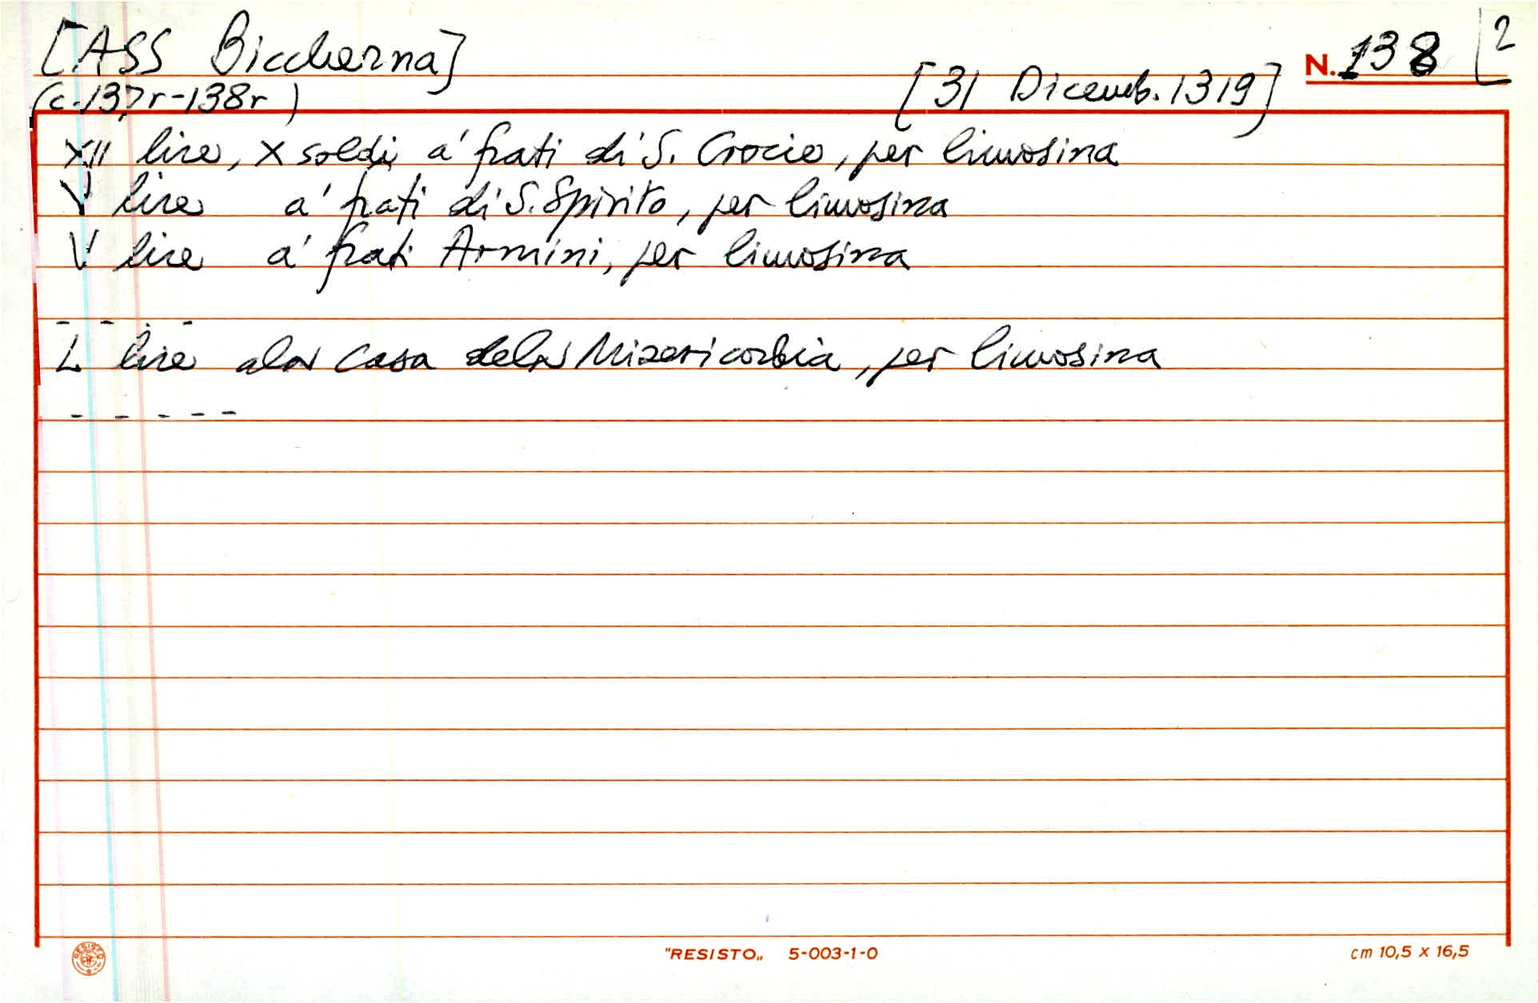 [ASS Biccherna]
N. 138 [2
(c. 137r-138r)
[31 Dicemb. 1319]
XII lire, X soldi a' frati di S. Crocie, per limosina
V lire a' frati di S. Spirito, per limosina
V lire a' frati Armini, per limosina
- - - -
L lire ala Casa dela Misericordia, per limosina
- - - - -
RESISTO
"RESISTO„ 5-003-1-0
cm 10,5 x 16,5